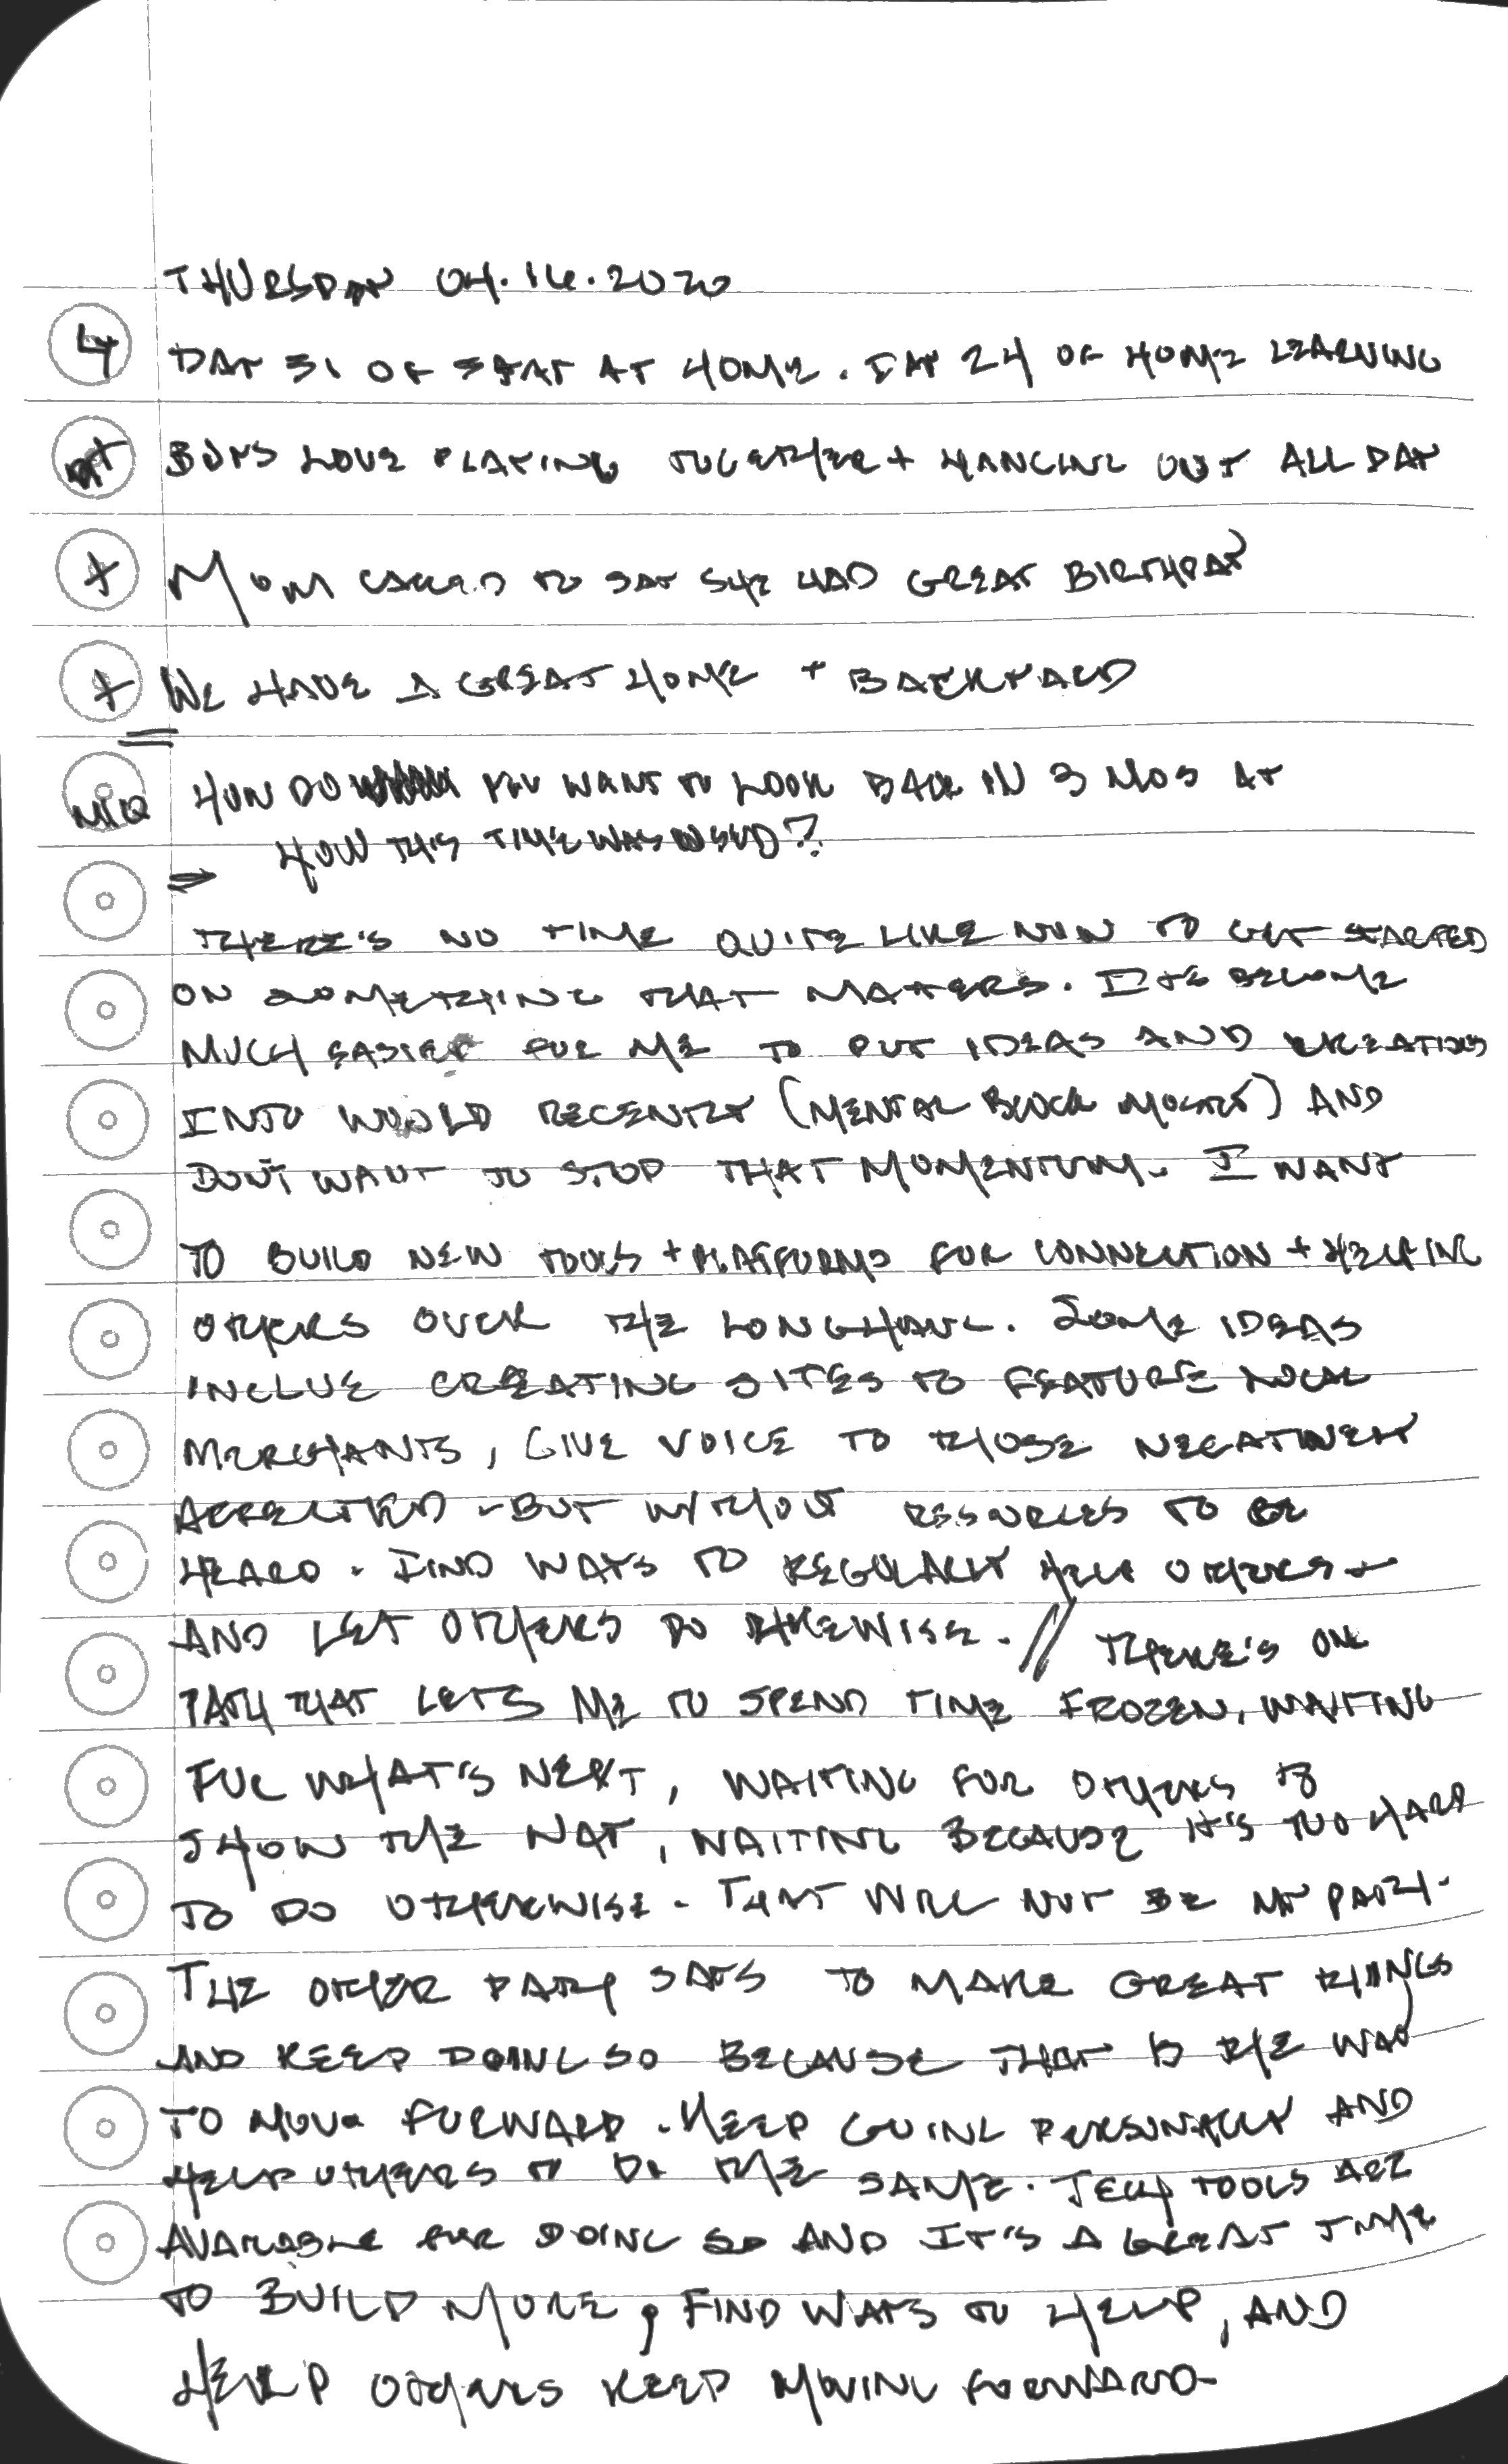 THURSDAY 04.16.2020
4 DAY 31 OF STAY AT HOME. DAY 24 OF HOME LEARNING
BOYS LOVE PLAYING TOGETHER + HANGING OUT ALL DAY
+ MOM CALLED TO SAY SHE HAD GREAT BIRTHDAY
+ WE HAVE A GREAT HOME + BACKYARD
MTQ HOW DO YOU WANT TO LOOK BACK IN 3 MOS AT
HOW THIS TIME WAS USED?
⇒
THERE'S NO TIME QUITE LIKE NOW TO GET STARTED
ON SOMETHING THAT MATTERS. IT'S BECOME
MUCH EASIER FOR ME TO PUT IDEAS AND CREATIONS
INTO WORLD RECENTLY (MENTAL BLOCK) AND
DON'T WANT TO STOP THAT MOMENTUM. I WANT
TO BUILD NEW TOOLS + PLATFORMS FOR CONNECTION + HELPING
OTHERS OVER THE LONGHAUL. SOME IDEAS
INCLUE CREATING SITES TO FEATURE LOCAL
MERCHANTS, GIVE VOICE TO THOSE NEGATIVELY
AFFECTED - BUT WITHOUT RESOURCES TO BE
HEARD. FIND WAYS TO REGULARLY HELP OTHERS -
AND LET OTHERS DO LIKEWISE. // THERE'S ONE
PATH THAT LETS ME TO SPEND TIME FROZEN, WAITING
FOR WHAT'S NEXT, WAITING FOR OTHERS TO
SHOW THE WAY, WAITING BECAUSE IT'S TOO HARD
TO DO OTHERWISE. THAT WILL NOT BE MY PATH.
THE OTHER PATH SAYS TO MAKE GREAT THINGS
AND KEEP DOING SO BECAUSE THAT IS THE WAY
TO MOVE FORWARD. KEEP GOING PERSONALLY AND
HELP OTHERS TO DO THE SAME. TECH TOOLS ARE
AVAILABLE FOR DOING SO AND IT'S A GREAT TIME
TO BUILD MORE, FIND WAYS TO HELP, AND
HELP OTHERS KEEP MOVING FORWARD-